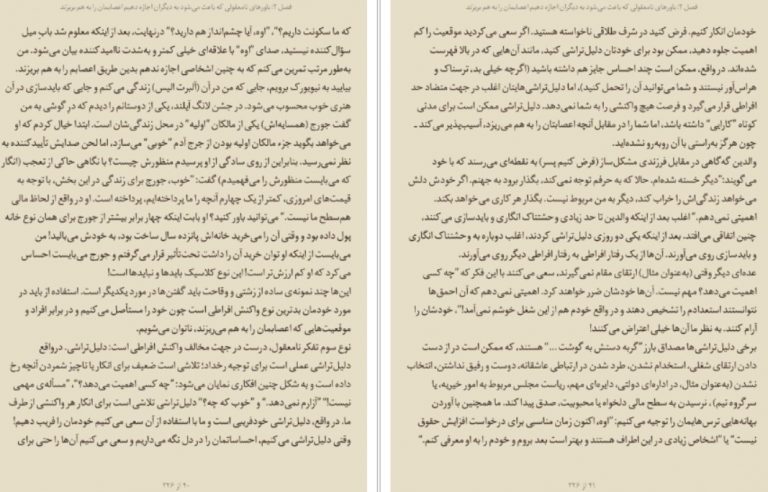 فصل ۲: باورهای نامعقولی که باعث می‌شود به دیگران اجازه دهیم اعصابمان را به هم بریزند
که ما سکونت داریم؟"، "اوه، آیا چشم‌انداز هم دارید؟" درنهایت، بعد از اینکه معلوم شد بابِ میل
سؤال‌کننده نیستید، صدای "اوه" با علاقه‌ای خیلی کمتر و به‌شدت ناامیدکننده بیان می‌شود. من
به‌طور مرتب تمرین می‌کنم که به چنین اشخاصی اجازه ندهم بدین طریق اعصابم را به هم بریزند.
بیایید به نیویورک برویم، جایی که من در آن (آلبرت الیس) زندگی می‌کنم و جایی که بایدسازی در آن
هنری خوب محسوب می‌شود. در جشن لانگ آیلند، یکی از دوستانم را دیدم که در گوشی به من
گفت جورج (همسایه‌اش) یکی از مالکان "اولیه" در محل زندگی‌شان است. ابتدا خیال کردم که او
می‌خواهد بگوید جزء مالکان اولیه بودن از جرج آدم "خوبی" می‌سازد، اما لحن صدایش تأییدکننده به
نظر نمی‌رسید. بنابراین از روی سادگی از او پرسیدم منظورش چیست؟ با نگاهی حاکی از تعجب (انگار
که می‌بایست منظورش را می‌فهمیدم) گفت: "خوب، جورج برای زندگی در این بخش، با توجه به
قیمت‌های امروزی، کمتر از یک چهارم آنچه را ما پرداخته‌ایم، پرداخته است. او در واقع از لحاظ مالی
هم‌سطح ما نیست." می‌توانید باور کنید؟ او بابت اینکه چهار برابر بیشتر از جورج برای همان نوع خانه
پول داده بود و وقتی آن را می‌خرید خانه‌اش پانزده سال ساخت بود، به خودش می‌بالید! من
می‌بایست از اینکه او توان خرید آن را داشت تحت‌تأثیر قرار می‌گرفتم و جورج می‌بایست احساس
می‌کرد که او کم ارزش‌تر است! این نوع کلاسیک بایدها و نبایدها است!
این‌ها چند نمونه‌ی ساده از زشتی و وقاحت باید گفتن‌ها در مورد یکدیگر است. استفاده از باید در
مورد خودمان بدترین نوع واکنش افراطی است چون خود را مستأصل می‌کنیم و در برابر افراد و
موقعیت‌هایی که اعصابمان را به هم می‌ریزند، ناتوان می‌شویم.
نوع سوم تفکر نامعقول، درست در جهت مخالف واکنش افراطی است: دلیل‌تراشی. درواقع
دلیل‌تراشی عملی است برای توجیه رخداد؛ تلاشی است ضعیف برای انکار یا ناچیز شمردن آنچه رخ
داده است و به شکل چنین افکاری نمایان می‌شود: "چه کسی اهمیت می‌دهد؟"، "مسأله‌ی مهمی
نیست!" "آزارم نمی‌دهد." و "خوب که چه؟" دلیل‌تراشی تلاشی است برای انکار هر واکنشی از طرف
ما. در واقع، دلیل‌تراشی خودفریبی است و ما با استفاده از آن سعی می‌کنیم خودمان را فریب دهیم!
وقتی دلیل‌تراشی می‌کنیم، احساساتمان را در دل نگه می‌داریم و سعی می‌کنیم آن‌ها را حتی برای
۴۰ از ۲۲۶
فصل ۲: باورهای نامعقولی که باعث می‌شود به دیگران اجازه دهیم اعصابمان را به هم بریزند
خودمان انکار کنیم. فرض کنید در شرف طلاقی ناخواسته هستید. اگر سعی می‌کردید موقعیت را کم
اهمیت جلوه دهید، ممکن بود برای خودتان دلیل‌تراشی کنید، مانند آن‌هایی که در بالا فهرست
شده‌اند. در واقع، ممکن است چند احساس جایز هم داشته باشید (اگرچه خیلی بد، ترسناک و
هراس‌آور نیستند و شما می‌توانید آن را تحمل کنید)، اما دلیل‌تراشی‌هایتان اغلب در جهت متضاد حد
افراطی قرار می‌گیرد و فرصت هیچ واکنشی را به شما نمی‌دهد. دلیل‌تراشی ممکن است برای مدتی
کوتاه "کارایی" داشته باشد، اما شما را در مقابل آنچه اعصابتان را به هم می‌ریزد، آسیب‌پذیر می‌کند ــ
چون هرگز به‌راستی با آن روبه‌رو نشده‌اید.
والدین گه‌گاهی در مقابل فرزندی مشکل‌ساز (فرض کنیم پسر) به نقطه‌ای می‌رسند که با خود
می‌گویند: "دیگر خسته شده‌ام. حالا که به حرفم توجه نمی‌کند، بگذار برود به جهنم. اگر خودش دلش
می‌خواهد زندگی‌اش را خراب کند، دیگر به من مربوط نیست. بگذار هر کاری می‌خواهد بکند.
اهمیتی نمی‌دهم." اغلب بعد از اینکه والدین تا حد زیادی وحشتناک انگاری و بایدسازی می‌کنند،
چنین اتفاقی می‌افتد. بعد از اینکه یکی دو روزی دلیل‌تراشی کردند، اغلب دوباره به وحشتناک انگاری
و بایدسازی روی می‌آورند. آن‌ها از یک رفتار افراطی به رفتار افراطی دیگر روی می‌آورند.
عده‌ای دیگر وقتی (به‌عنوان مثال) ارتقای مقام نمی‌گیرند، سعی می‌کنند با این فکر که "چه کسی
اهمیت می‌دهد؟ مهم نیست. آن‌ها خودشان ضرر خواهند کرد. اهمیتی نمی‌دهم که آن احمق‌ها
نتوانستند استعدادم را تشخیص دهند و در واقع خودم هم از این شغل خوشم نمی‌آمد!"، خودشان را
آرام کنند. به نظر ما آن‌ها خیلی اعتراض می‌کنند!
برخی دلیل‌تراشی‌ها مصداق بارز "گربه دستش به گوشت ..." هستند، که ممکن است در از دست
دادن ارتقای شغلی، استخدام نشدن، طرد شدن در ارتباطی عاشقانه، دوست و رفیق نداشتن، انتخاب
نشدن (به‌عنوان مثال، در اداره‌ای دولتی، دایره‌ای مهم، ریاست مجلس مربوط به امور خیریه، یا
سرگروه تیم)، نرسیدن به سطح مالی دلخواه یا محبوبیت، صدق پیدا کند. ما همچنین با آوردن
بهانه‌هایی ترس‌هایمان را توجیه می‌کنیم: "اوه، اکنون زمان مناسبی برای درخواست افزایش حقوق
نیست" یا "اشخاص زیادی در این اطراف هستند و بهتر است بعد بروم و خودم را به او معرفی کنم."
۴۱ از ۲۲۶